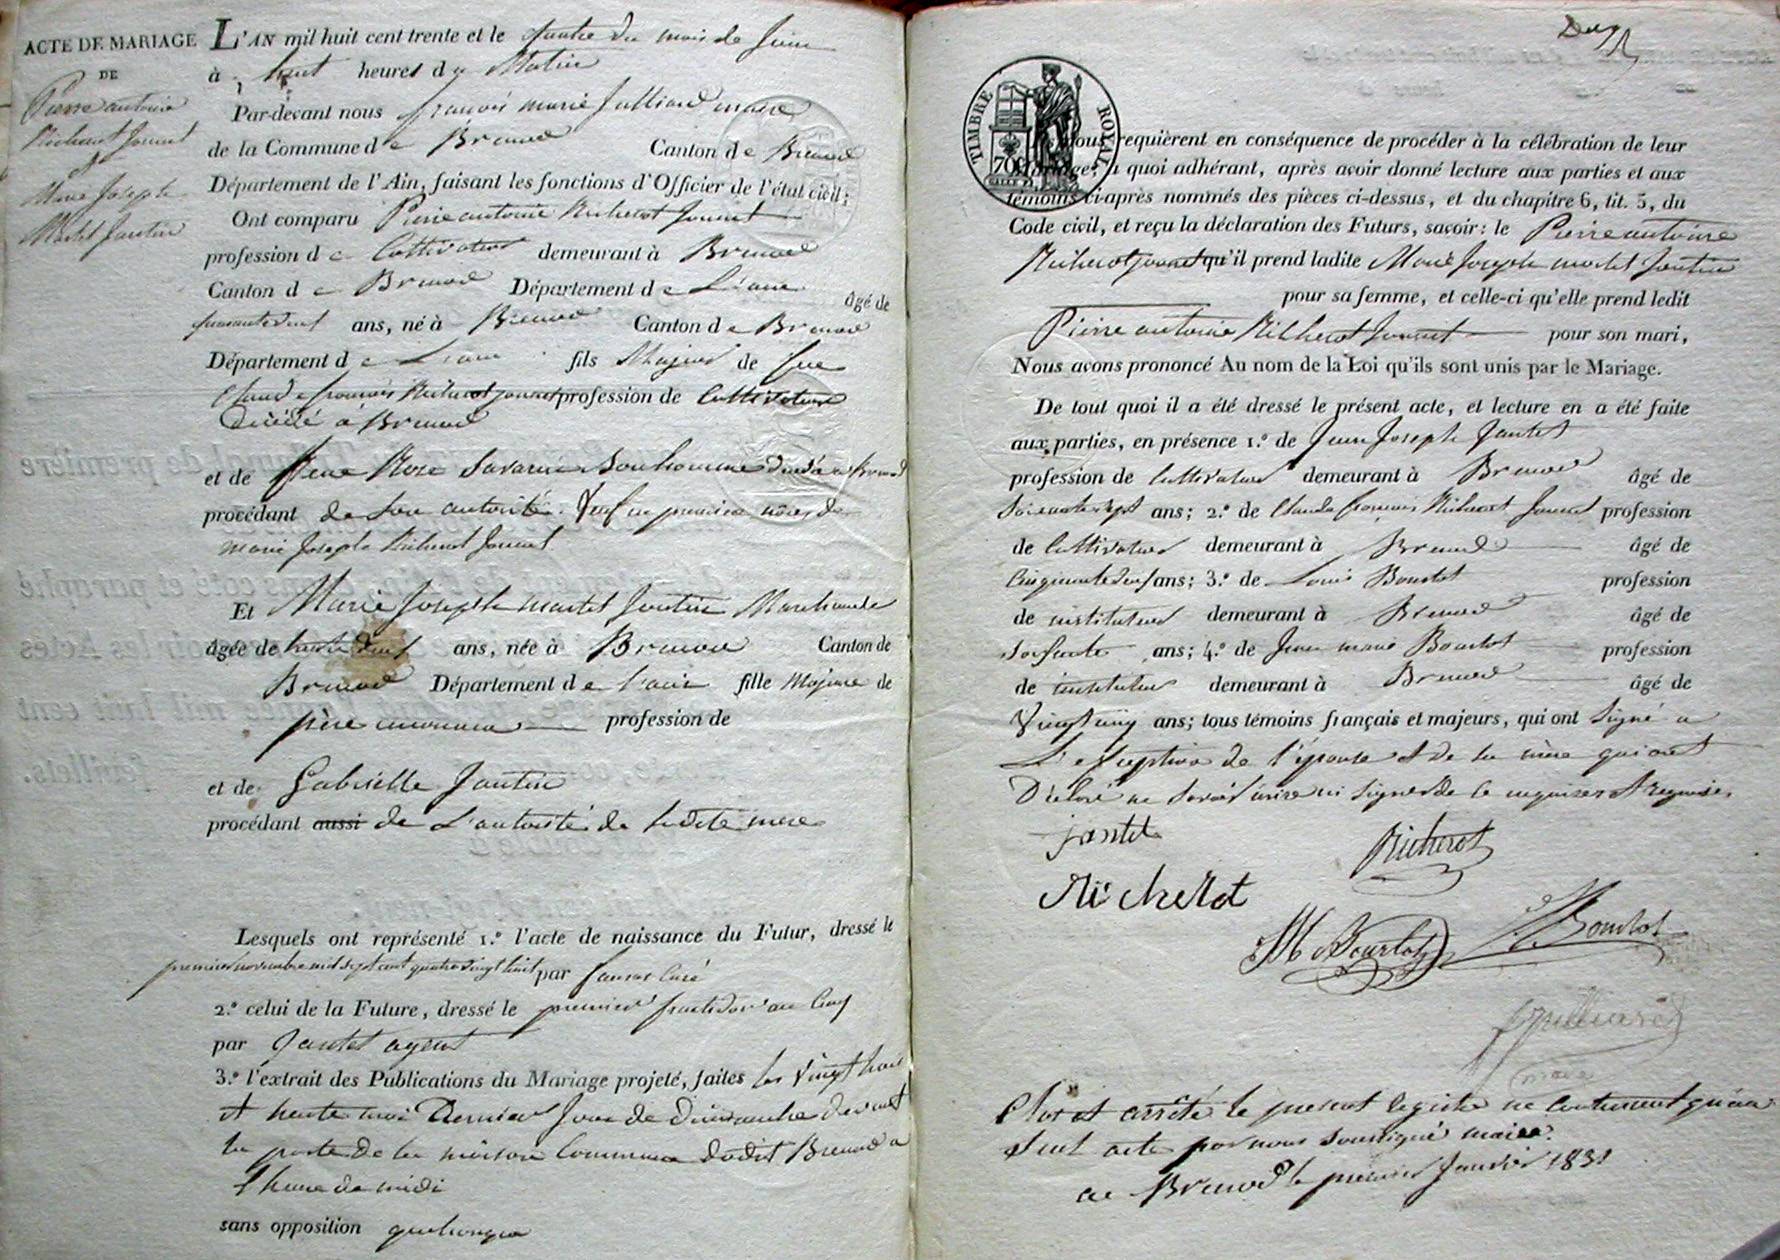 ACTE DE MARIAGE
DE
Pierre antoine
Richerot Jounet
et
Marie Joseph
Martel Jantin
L'AN mil huit cent trente et le quatre du mois de Juin
à huit heures du Matin
Par-devant nous françois marie Julliard maire
de la Commune de Brenod Canton de Brenod
Département de l'Ain, faisant les fonctions d'Officier de l'état civil;
Ont comparu Pierre antoine Richerot Jounet
profession de Cultivateur demeurant à Brenod
Canton de Brenod Département de L'ain âgé de
ans, né à Brenod Canton de Brenod
Département de L'ain fils Majeur de feu
Claude françois Richerot Jounet profession de Cultivateur
décédé à Brenod
et de feue Rose Savarin Bonhomme décédée à Brenod
procédant de son autorité. Veuf en premieres noces de
marie Josephe Richerot Jounet
Et Marie Joseph martel Jantin Marchande
âgée de ans, née à Brenod Canton de
Brenod Département de l'ain fille Majeure de
père inconnu profession de
et de Gabrielle Jantin
procédant aussi de L'autorité de sa dite mere
Lesquels ont représenté 1.º l'acte de naissance du Futur, dressé le
premier novembre mil sept cent quatre vingt huit par Curé
2.º celui de la Future, dressé le premier fructidor an Cinq
par Jantet agent
3.º l'extrait des Publications du Mariage projeté, faites les vingt trois
et trente mai Dernier Jour de Dimanche devant
la porte de la maison Commune dudit Brenod a
l'heure de midi
sans opposition quelconque
TIMBRE ROYAL
70C
requièrent en conséquence de procéder à la célébration de leur
mariage; à quoi adhérant, après avoir donné lecture aux parties et aux
témoins ci-après nommés des pièces ci-dessus, et du chapitre 6, tit. 5, du
Code civil, et reçu la déclaration des Futurs, savoir: le Pierre antoine
Richerot Jounet qu'il prend ladite Marie Joseph martel Jantin
pour sa femme, et celle-ci qu'elle prend ledit
Pierre antoine Richerot Jounet pour son mari,
Nous avons prononcé Au nom de la Loi qu'ils sont unis par le Mariage.
De tout quoi il a été dressé le présent acte, et lecture en a été faite
aux parties, en présence 1.º de Jean Joseph Jantet
profession de Cultivateur demeurant à Brenod âgé de
Soixante sept ans; 2.º de Claude françois Richerot Jounet profession
de Cultivateur demeurant à Brenod âgé de
ans; 3.º de Louis Bourlot profession
de instituteur demeurant à Brenod âgé de
Soixante ans; 4.º de Jean marie Bourlot profession
de instituteur demeurant à Brenod âgé de
Vingt cinq ans; tous témoins français et majeurs, qui ont Signé a
L'exception de l'épouse et de sa mère qui ont
Déclaré ne Savoir écrire ni signer de ce enquises et requises
jantet
Richerot
Richerot
JM Bourlot
L. Bourlot
Julliard
maire
Clos et arrêté le present registre ne contenant qu'un
seul acte par nous soussigné maire.
a Brenod le premier Janvier 1831